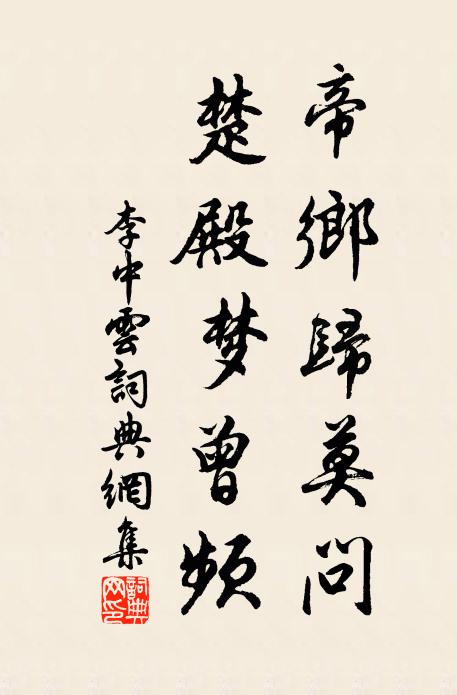 帝鄉歸莫問
楚殿梦曾频
李中雲詞典網集
詞典网印